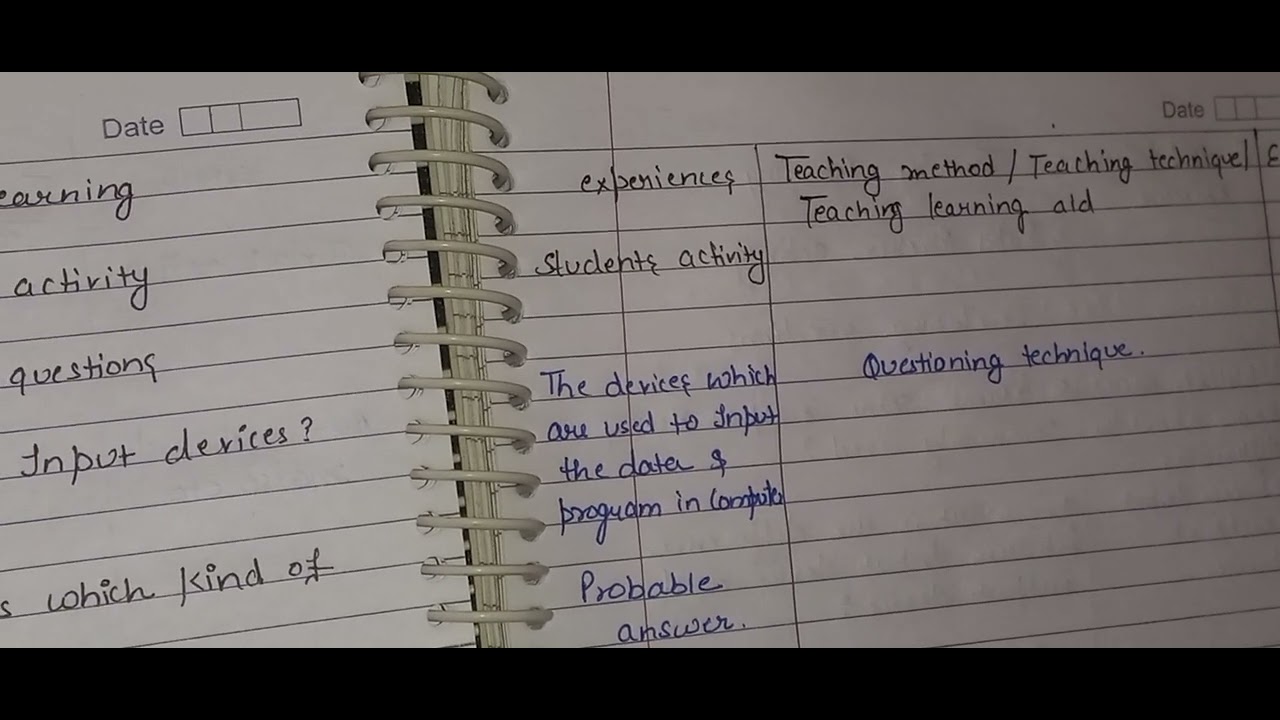 Date
earning
activity
questions
Input devices?
s which kind of
Date
experiences
Teaching method / Teaching technique/
Teaching learning aid
students activity
The devices which
are used to Input
the data &
program in Computer
Questioning technique.
Probable
answer.